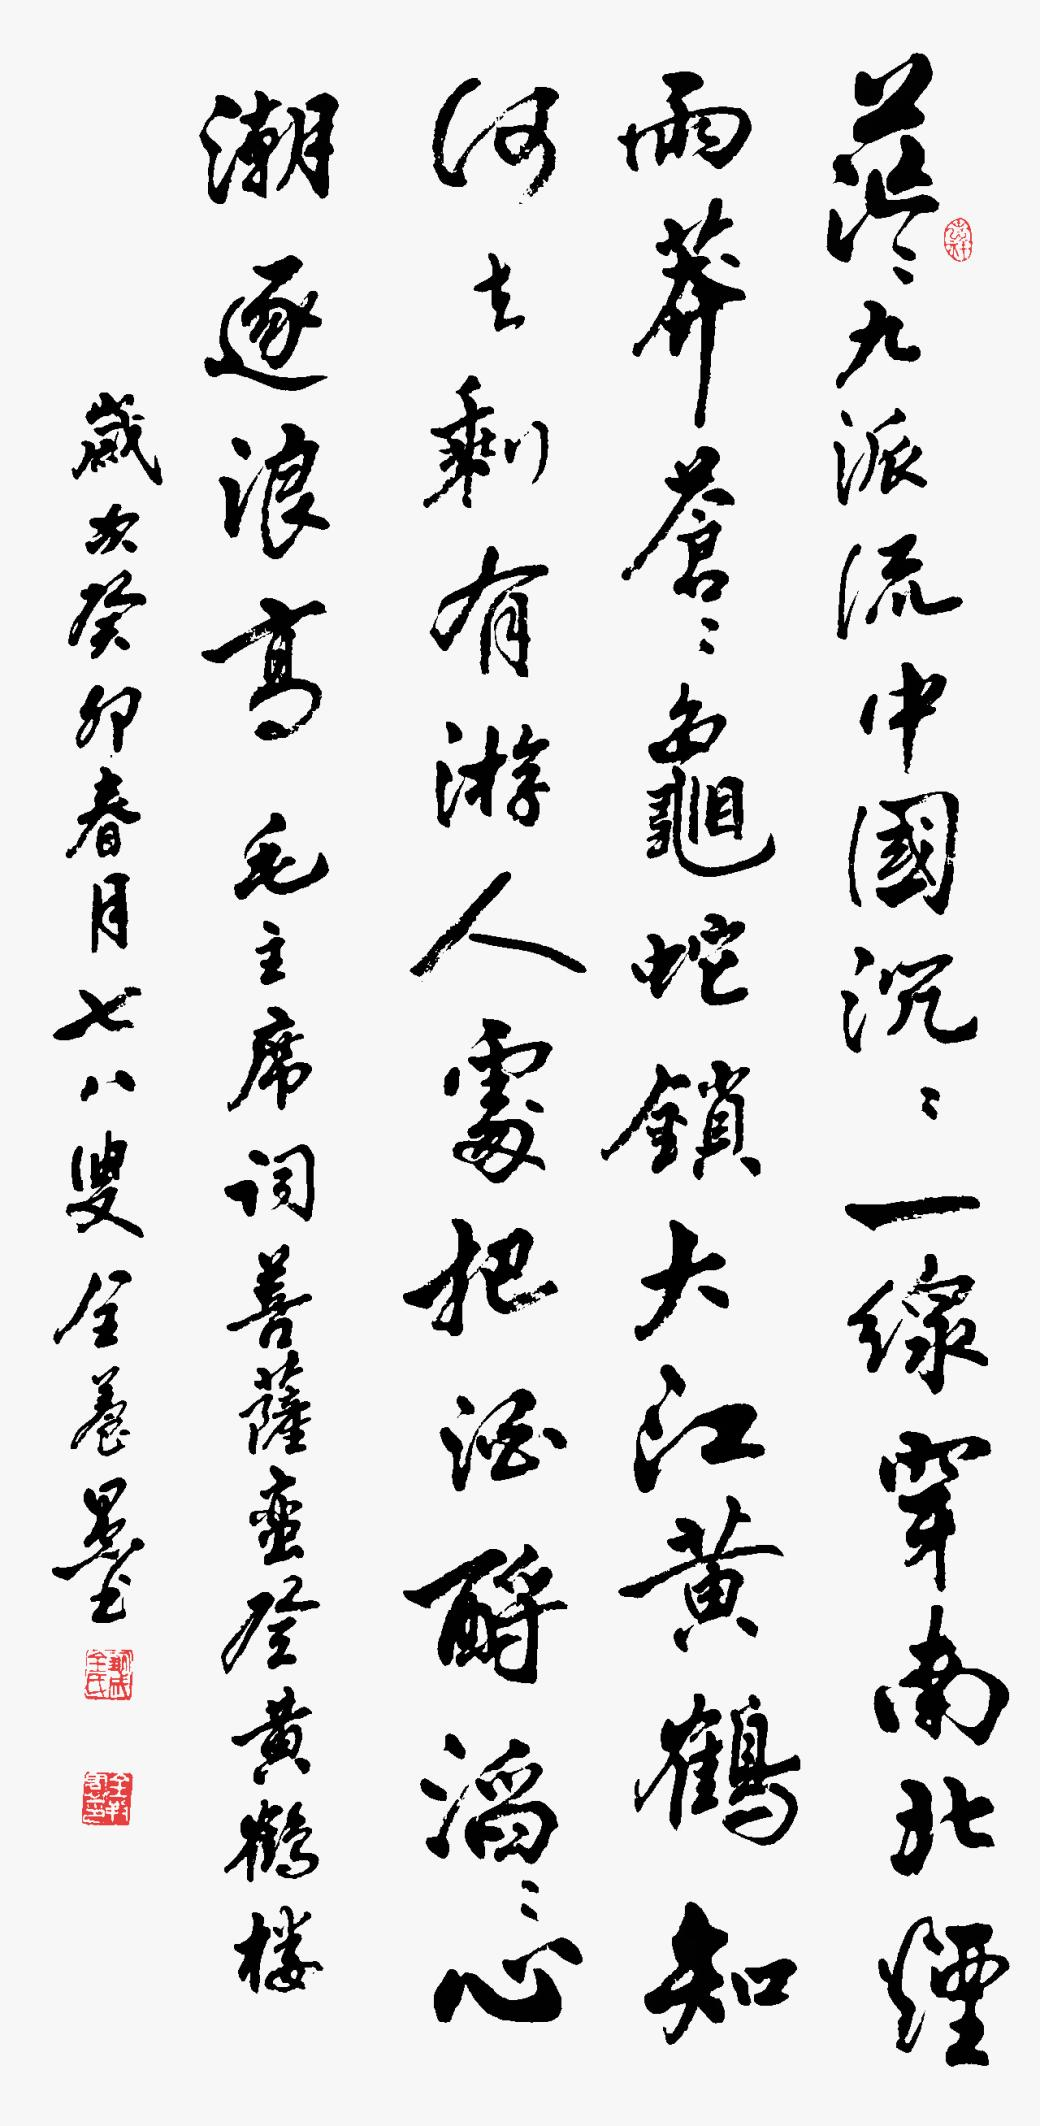 茫〻九派流中國沉〻一線穿南北煙
雨莽蒼〻龜蛇鎖大江黄鶴知
何去剩有游人處把酒酹滔〻心
潮逐浪高 毛主席词菩薩蛮登黄鶴楼
歲次癸卯春月七八叟全養墨书